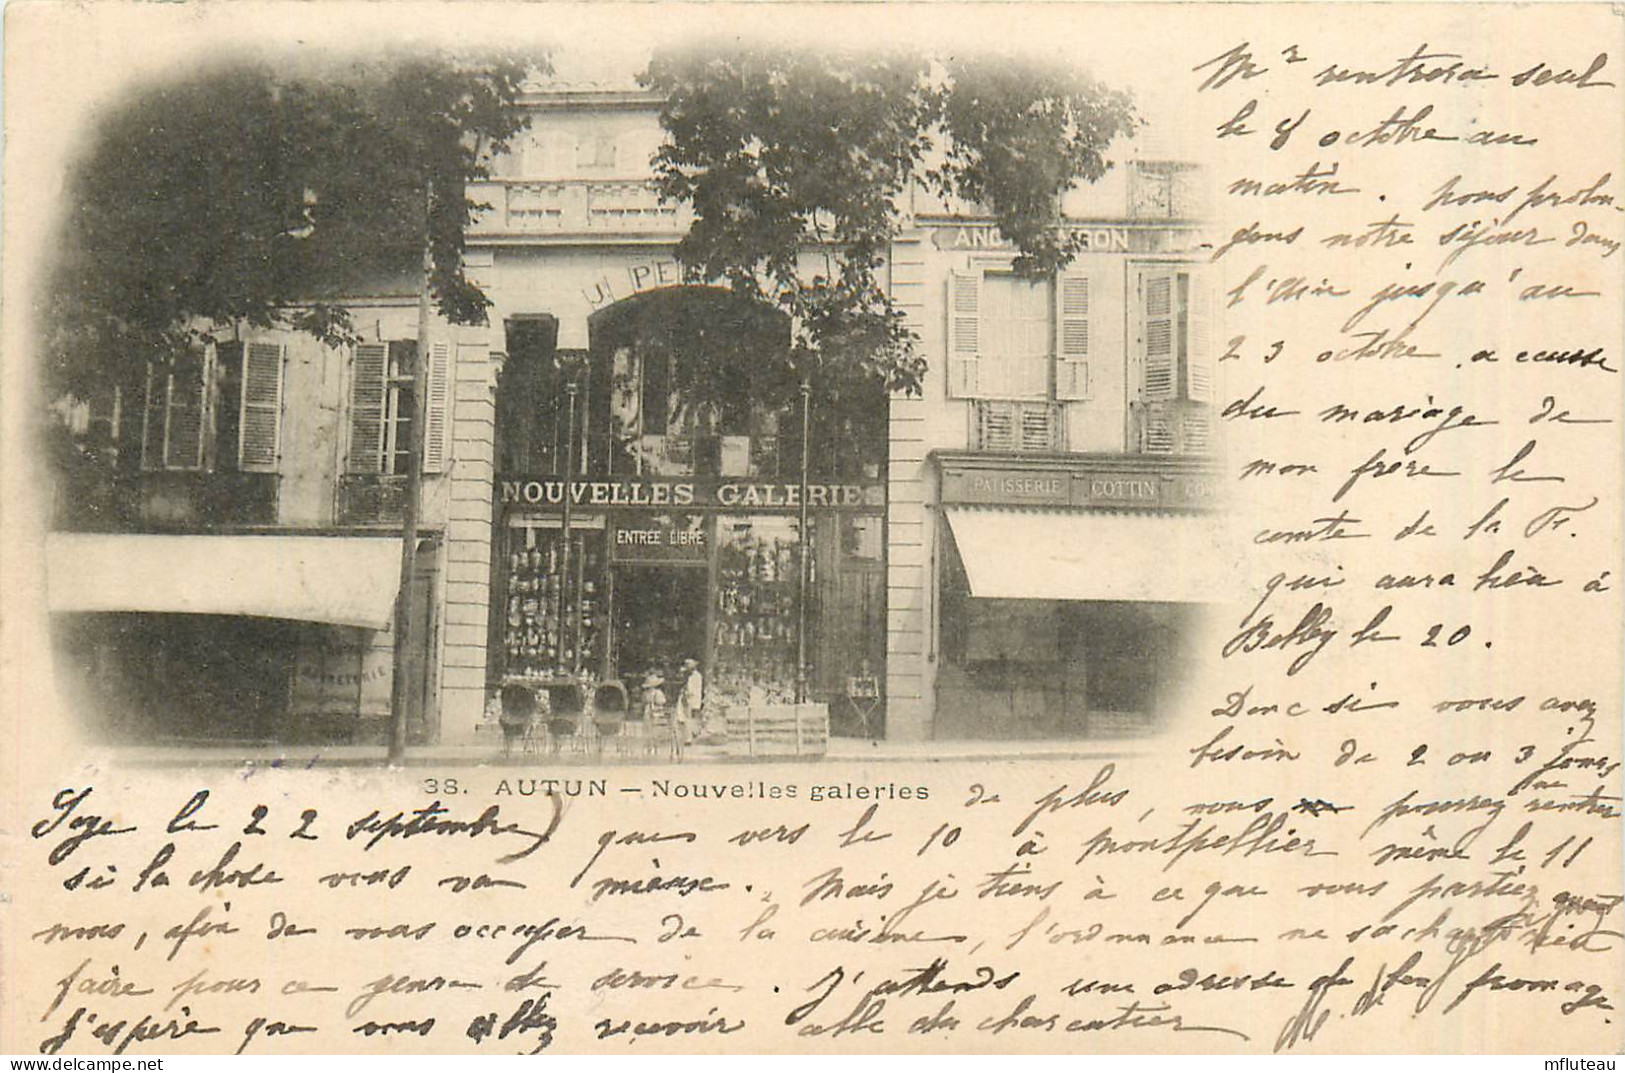 Mr rentrera seul
le 8 octobre au
matin. nous prolon-
geons notre séjour dans
l'Ain jusqu'au
23 octobre a causse
du mariage de
mon frère le
comte de la Fr.
qui aura lieu à
Belley le 20.
Donc si vous avez
besoin de 2 ou 3 jours
de plus, vous ne pourrez rentrer
ANC
PATISSERIE COTTIN
J PE
NOUVELLES GALERIES
ENTRÉE LIBRE
38. AUTUN — Nouvelles galeries
le 22 septembre
que vers le 10 à Montpellier même le 11
si la chose vous va mieux. Mais je tiens à ce que vous partiez avant
nous, afin de vous occuper de la cuisine, l'ordonnance ne sachant rien
faire pour ce genre de service. J'attends une adresse de fromage.
J'espère que vous allez recevoir celle du charcutier
mfluteau